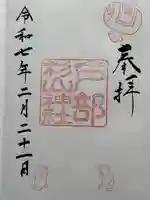 奉拝
戸部杉社
令和七年二月二十一日